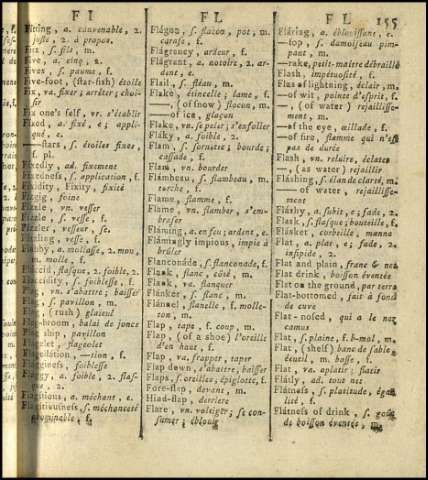 FI
FL
FL 155
Fitting, a. convenable, 2.
juste, 2. à propos.
Fitz, s. fils, m.
Five, a. cinq, 2.
Fives, s. paume, f.
Five-foot, (star-fish) étoile
Fix, va. fixer; arrêter; choi-
sir
Fix one's self, vr. s'établir
Fixed, a. fixé, e; appli-
qué, e.
—stars, s. étoiles fixes,
f. pl.
Fixedly, ad. fixement
Fixedness, s. application, f.
Fixidity, Fixity, fixité
Fizgig, foine
Fizzle, vn. vesser
Fizzle, s. vesse, f.
Fizzler, vesseur, se.
Fizzling, vesse, f.
Flabby, a. mollasse, 2. mou,
m. molle, f.
Flaccid, flasque, 2. foible, 2.
Flaccidity, s. foiblesse, f.
Flag, vn. s'abattre; baisser
Flag, s. pavillon, m.
Flag, (rush) glaieul
Flag-broom, balai de jonce
Flag ship, pavillon
Flagelet, flageolet
Flagellation, —tion, f.
Flagginess, foiblesse
Flaggy, a. foible, 2. flas-
que, 2.
Flagitious, a. méchant, e.
Flagitiousness, s. méchanceté
abominable, f.
Flágon, s. flacon, pot, m.
carafe, f.
Flágrency, ardeur, f.
Flágrant, a. notoire, 2. ar-
dent, e.
Flail, s. fléau, m.
Flake, étincelle; lame, f.
—, (of snow) flocon, m.
—of ice, glaçon
Flake, vn. se peler; s'enfoller
Fláky, a. foible, 2.
Flam, s. sornette; bourde;
cassade, f.
Flam, vn. bourder
Flámbeau, s. flambeau, m.
torche, f.
Flame, flamme, f.
Flame, vn. flamber, s'em-
braser
Fláming, a. en feu; ardent, e.
Flámingly impious, impie à
brûler
Flanconáde, s. flanconade, f.
Flank, flanc, côté, m.
Flank, va. flanquer
Flánker, s. flanc, m.
Flánnel, flanelle, f. molle-
ton, m.
Flap, tape, f. coup, m.
Flap, (of a shoe) l'oreille
d'en haut, f.
Flap, va. frapper, taper
Flap down, s'abattre, baisser
Flaps, s. oreilles, épiglotte, f.
Fore-flap, devant, m.
Hind-flap, derriere
Flare, vn. voltiger; se con-
sumer; éblouir
Fláring, a. éblouissant, e.
—fop, s. damoiseau pim-
pant, m.
—rake, petit-maitre débraillé
Flash, impétuosité, f.
Flas of lightning, éclair, m.
—of wit; pointe d'esprit, f.
—, (of water) rejaillisse-
ment, m.
—of the eye, œillade, f.
—of fire, flamme qui n'est
pas de durée
Flash, vn. reluire, éclater
—, (as water) rejaillir
Fláshing, s. élan de clarté, m.
— of water, rejaillisse-
ment, m.
Fláshy, a. subit, e; fade, 2.
Flask, s. flasque; bouteille, f.
Flásket, corbeille, manne
Flat, a. plat, e; fade, 2.
insipide, 2.
Flat and plain, franc & net
Flat drink, boisson éventée
Flat on the ground, par terre
Flat-bottomed, fait à fond
de cuve
Flat-nosed, qui a le nez
camus
Flat, s. plaine, f. b-mol, m.
Flat, (shelf) banc de sable,
écueil, m. basse, f.
Flat, va. aplatir; flatir
Flátly, ad. tout net
Flátness, s. platitude, éga-
lité, f.
Flátness of drink, s. goût
de boisson éventée, m.